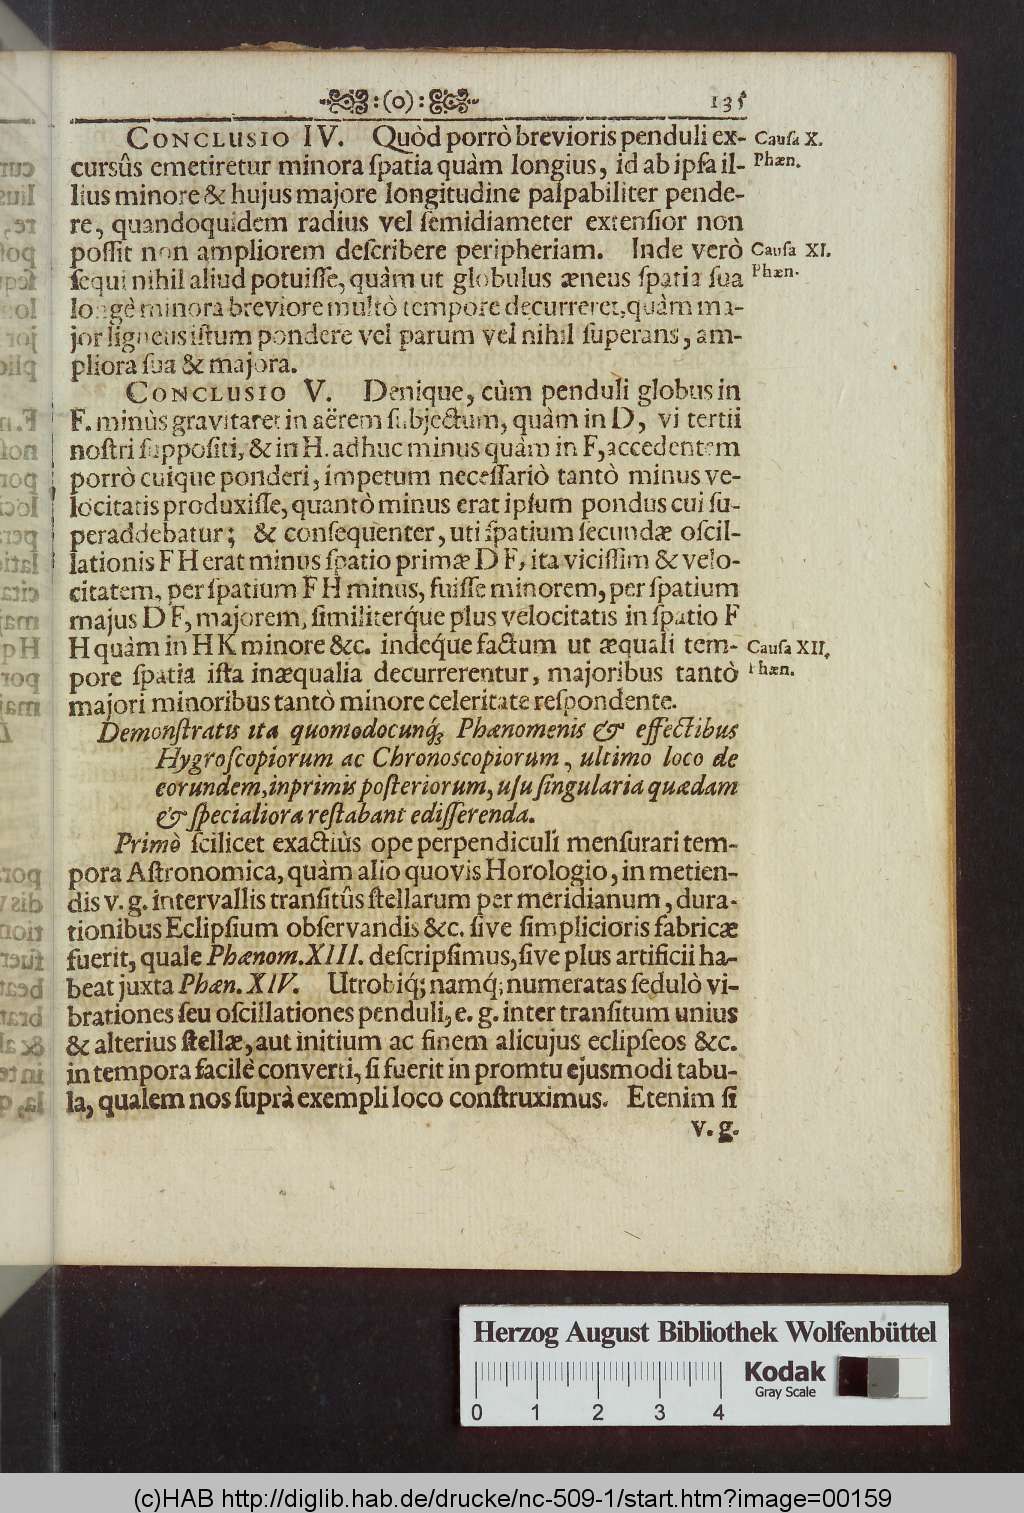 :(o): 135
CONCLUSIO IV. Quòd porrò brevioris penduli ex-
Cauſa X.
curſûs emetiretur minora ſpatia quàm longius, id ab ipſa il-
Phæn.
lius minore & hujus majore longitudine palpabiliter pende-
re, quandoquidem radius vel ſemidiameter extenſior non
poſſit non ampliorem deſcribere peripheriam. Inde verò
Cauſa XI.
ſequi nihil aliud potuiſſe, quàm ut globulus æneus ſpatia ſua
Phæn.
longè minora breviore multò tempore decurreret, quàm ma-
jor ligneus iſtum pondere vel parum vel nihil ſuperans, am-
pliora ſua & majora.
CONCLUSIO V. Denique, cùm penduli globus in
F. minùs gravitaret in aërem ſubjectum, quàm in D, vi tertii
noſtri ſuppoſiti, & in H. adhuc minus quàm in F, accedentem
porrò cuique ponderi, impetum neceſſariò tantò minus ve-
locitatis produxiſſe, quantò minus erat ipſum pondus cui ſu-
peraddebatur; & conſequenter, uti ſpatium ſecundæ oſcil-
lationis F H erat minus ſpatio primæ D F, ita viciſſim & velo-
citatem, per ſpatium F H minus, fuiſſe minorem, per ſpatium
majus D F, majorem, ſimiliterq́ue plus velocitatis in ſpatio F
H quàm in H K minore &c. indeq́ue factum ut æquali tem-
Cauſa XII.
pore ſpatia iſta inæqualia decurrerentur, majoribus tantò
Phæn.
majori minoribus tantò minore celeritate reſpondente.
Demonſtratis ita quomodocunq́; Phænomenis & effectibus
Hygroſcopiorum ac Chronoscopiorum, ultimo loco de
eorundem, inprimis poſteriorum, uſu ſingularia quædam
& ſpecialiora reſtabant edifferenda.
Primò ſcilicet exactiùs ope perpendiculi menſurari tem-
pora Aſtronomica, quàm alio quovis Horologio, in metien-
dis v. g. intervallis tranſitûs ſtellarum per meridianum, dura-
tionibus Eclipſium obſervandis &c. ſive ſimplicioris fabricæ
fuerit, quale Phænom. XIII. deſcripſimus, ſive plus artificii ha-
beat juxta Phæn. XIV. Utrobiq́; namq́; numeratas ſedulò vi-
brationes ſeu oſcillationes penduli, e. g. inter tranſitum unius
& alterius ſtellæ, aut initium ac finem alicujus eclipſeos &c.
in tempora facilè converti, ſi fuerit in promtu ejusmodi tabu-
la, qualem nos ſuprà exempli loco conſtruximus. Etenim ſi
v. g.
Herzog August Bibliothek Wolfenbüttel
Kodak
Gray Scale
0 1 2 3 4
(c)HAB http://diglib.hab.de/drucke/nc-509-1/start.htm?image=00159